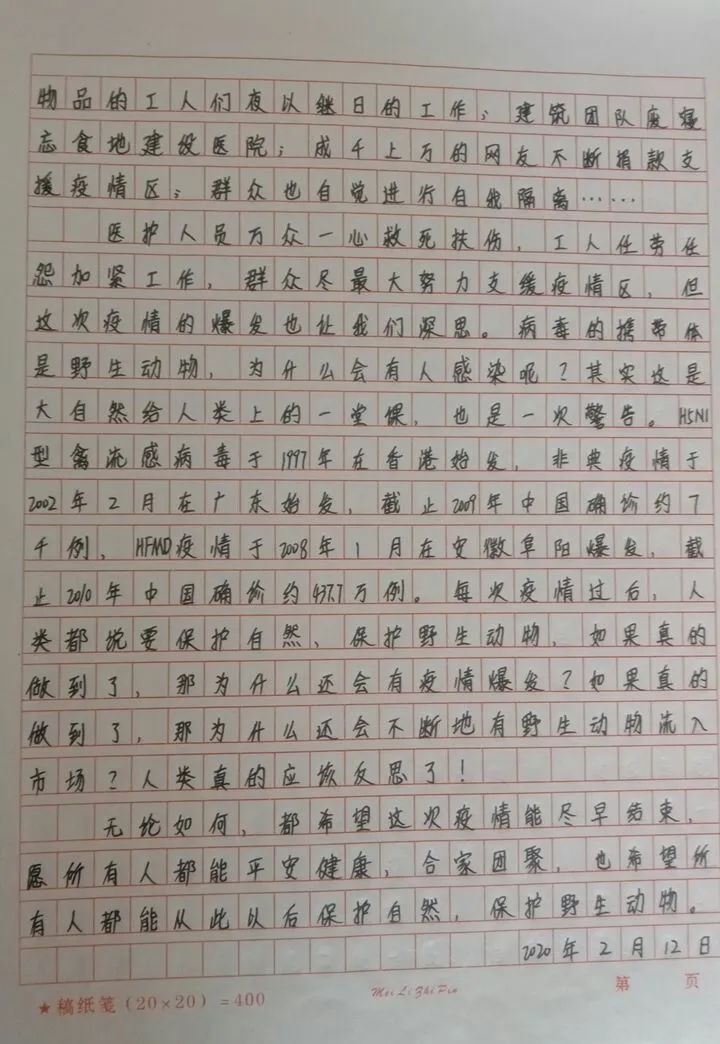 物品的工人们夜以继日的工作；建筑团队废寝
忘食地建设医院；成千上万的网友不断捐款支
援疫情区；群众也自觉进行自我隔离……
医护人员万众一心救死扶伤，工人任劳任
怨加紧工作，群众尽最大努力支缓疫情区，但
这次疫情的爆发也让我们深思。病毒的携带体
是野生动物，为什么会有人感染呢？其实这是
大自然给人类上的一堂课，也是一次警告。H5N1
型禽流感病毒于1997年在香港始发，非典疫情于
2002年2月在广东始发，截止2009年中国确诊约7
千例，HFMD疫情于2008年1月在安徽阜阳爆发，截
止2010年中国确诊约437.7万例。每次疫情过后，人
类都说要保护自然、保护野生动物，如果真的
做到了，那为什么还会有疫情爆发？如果真的
做到了，那为什么还会不断地有野生动物流入
市场？人类真的应该反思了！
无论如何，都希望这次疫情能尽早结束，
愿所有人都能平安健康，合家团聚，也希望所
有人都能从此以后保护自然，保护野生动物。
2020年2月12日
★稿纸笺（20×20）=400 Mei Li Zhi Pin 第 页